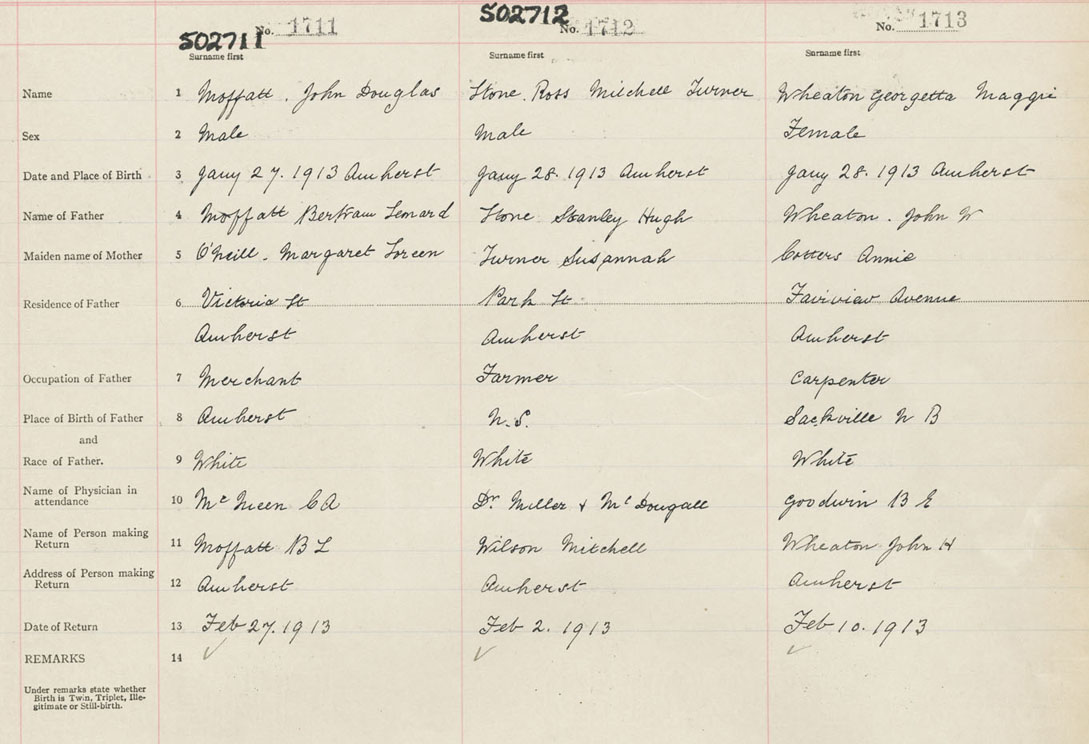 502711 No. 1711 502712 No. 1712 No. 1713
Surname first Surname first Surname first
Name 1 Moffatt. John Douglas Stone. Ross Mitchell Turner Wheaton Georgetta Maggie
Sex 2 Male Male Female
Date and Place of Birth 3 Jany 27. 1913 Amherst Jany 28. 1913 Amherst Jany 28. 1913 Amherst
Name of Father 4 Moffatt Bertram Lenard Stone Stanley Hugh Wheaton. John W
Maiden name of Mother 5 O'Neill. Margaret Loreen Turner Susannah Cotters Annie
Residence of Father 6 Victoria St Park St Fairview Avenue
Amherst Amherst Amherst
Occupation of Father 7 Merchant Farmer Carpenter
Place of Birth of Father 8 Amherst N.S. Sackville N B
and
Race of Father. 9 White White White
Name of Physician in
attendance 10 McQueen CA Dr. Miller & McDougall Goodwin B E
Name of Person making
Return 11 Moffatt B L Wilson Mitchell Wheaton John H
Address of Person making
Return 12 Amherst Amherst Amherst
Date of Return 13 Feb 27. 1913 Feb 2. 1913 Feb 10. 1913
REMARKS 14 ✓ ✓ ✓
Under remarks state whether
Birth is Twin, Triplet, Ille-
gitimate or Still-birth.